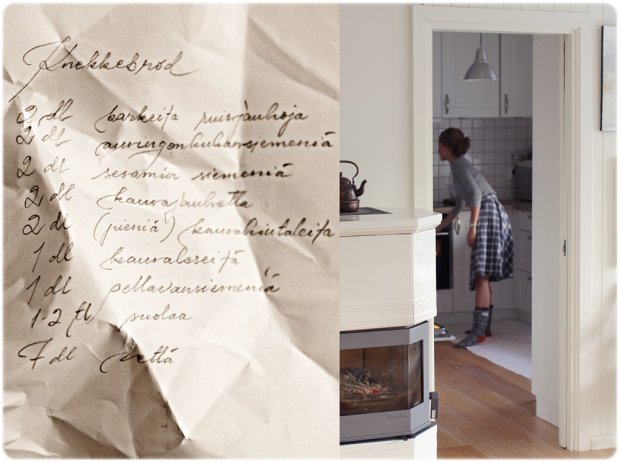 Knekkebrød
2 dl karkeita ruisjauhoja
2 dl auringonkukansiemeniä
2 dl sesamin siemeniä
2 dl kaurajauhetta
2 dl (pieniä) kaurahiutaleita
1 dl kauraleseitä
1 dl pellavansiemeniä
1-2 tl suolaa
7 dl vettä